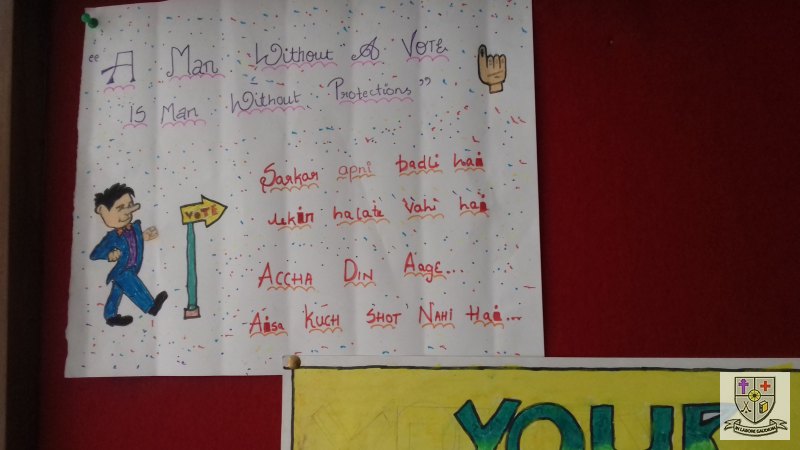 "A Man Without A VOTE
IS Man Without Protections"
VOTE
Sarkar apni badli hai
Lekin halate Vahi hai
ACCHA DIN Aage...
Aisa KUCH SHOT NAHI Hai...
YOUR
IN LABORE GAUDIUM